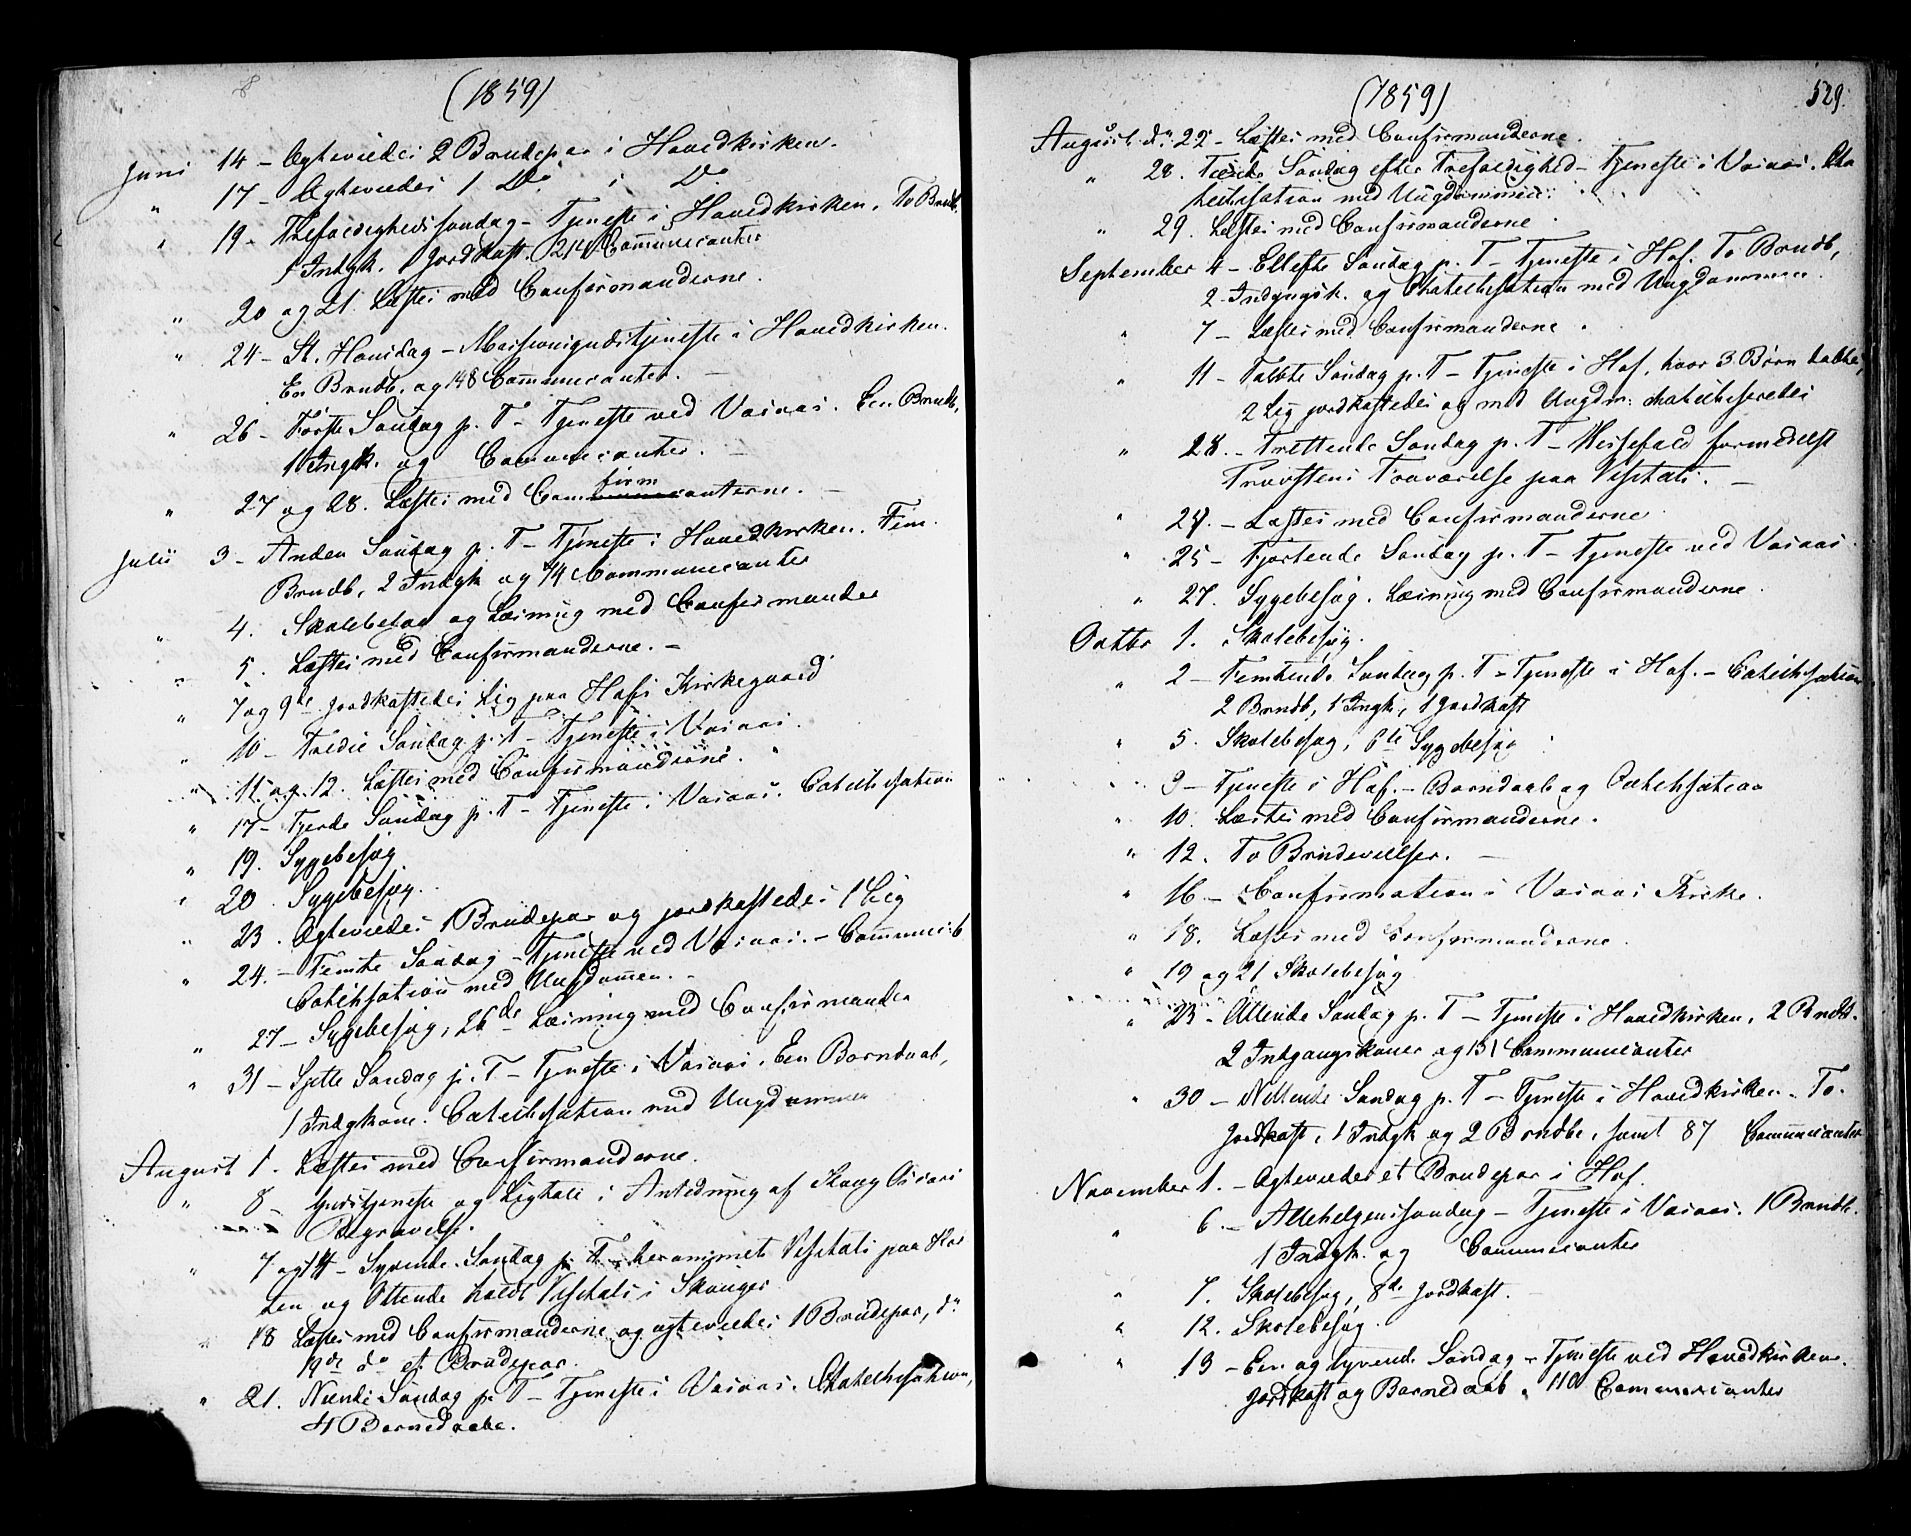 (1859)
Juni 14 - Ægteviedes 2 Brudepar i Hovedkirken.
" 17 - Ægteviedes 1 Do i Do
" 19 - Trefoldighedssøndag - Tjeneste i Hovedkirken. To Brndb.
1 Indgk. 1 Jordkast. 214 Communicanter
" 20 og 21. Læstes med Confirmanderne.
" 24 - St. Hansdag - Messe tjeneste i Hovedkirken.
En Brndb. og 148 Communicanter. -
" 26 - Første Søndag p. T - Tjeneste ved Vasaas. En Brndb,
1 Ingk. og Communicanter. -
firm
" 27 og 28. Læstes med Communicanterne. -
Julii 3 - Anden Søndag p. T - Tjeneste i Hovedkirken. Fem
Brndb, 2 Indgk og 74 Communicanter
" 4. Skolebesøg og Læsning med Confirmander
" 5. Læstes med Confirmanderne. -
" 7 og 9de jordkastedes Lig paa Hofs Kirkegaard
" 10 - Tredie Søndag p. T - Tjeneste i Vasaas.
" 11 og 12. Læstes med Confirmanderne.
" 17 - Fjerde Søndag p. T - Tjeneste i Vasaas. Catechisation
" 19. Sygebesøg.
" 20. Sygebesøg.
" 23. Ægteviedes 1 Brudepar og jordkastedes 1 Lig
" 24. - Femte Søndag - Tjeneste ved Vasaas. -
Catechisation med Ungdommen. -
" 27 - Sygebesøg, 26de Læsning med Confirmander
" 31 - Sjette Søndag p. T - Tjeneste i Vasaas. Een Barndaab,
1 Indgkone. Catechisation med Ungdommen
August 1. Læstes med Confirmanderne.
" 8 - Gudstjeneste og Ligtale i Anledning af
Begravelse.
" 7 og 14 - Syvende Søndag p. T - Visitats paa
og Ottende holdt Visitats i Skouger
" 18 Læstes med Confirmanderne og ægteviedes 1 Brudepar, d:
19de do et Brudepar.
" 21. Niende Søndag p. T - Tjeneste i Vasaas. Chatechisation,
4 Barnedaabe.
(1859) 529.
August d: 22 - Læstes med Confirmanderne.
" 28. Tiende Søndag efter Trefoldighed - Tjeneste i Vasaas. Cha
techisation med Ungdommen.
" 29. Læstes med Confirmanderne
September 4 - Ellefte Søndag p. T - Tjeneste i Hof. To Brndb,
2 Indgngsk. og Chatechisation med Ungdommen.
" 7 - Læstes med Confirmanderne.
" 11 - Tolvte Søndag p. T - Tjeneste i Hof, hvor 3 Børn døbtes,
2 Lig jordkastedes og med Ungdm: chatechiseredes
" 28. - Trettende Søndag p. T - Messefald formedelst
Provstens Fraværelse paa Visitats. -
" 24. - Læstes med Confirmanderne
" 25 - Fjortende Søndag p. T - Tjeneste ved Vasaas.
" 27. Sygebesøg. Læsning med Confirmanderne.
Octber 1. Skolebesøg.
" 2 - Femtende Søndag p. T - Tjeneste i Hof. - Catechisation
2 Brndb, 1 Ingk, 1 Jordkast
" 5. Skolebesøg, 6te Sygebesøg
" 9 - Tjeneste i Hof. - Barndaab og Catechisation
" 10. Læstes med Confirmanderne.
" 12. To Brudevielser. -
" 16 - Confirmation i Vasaas Kirke.
" 18. Læstes med Confirmanderne.
" 19 og 21 Skolebesøg
" 23 - Attende Søndag p. T - Tjeneste i Hovedkirken, 2 Brndb.
2 Indgangskoner og 131 Communicanter
" 30 - Nittende Søndag p. T - Tjeneste i Hovedkirken. To
Jordkast, 1 Indgk og 2 Brndbe, samt 87 Communicanter
November 1. - Ægteviedes et Brudepar i Hof.
" 6 - Allehelgenssøndag - Tjeneste i Vasaas. 1 Brndb.
1 Indgk. og Communicanter
" 7. Skolebesøg, 8de Jordkast. -
" 12. Skolebesøg.
" 13 - Een og tyvende Søndag - Tjeneste ved Hovedkirken.
Jordkast og Barnedaab. 110 Communicanter